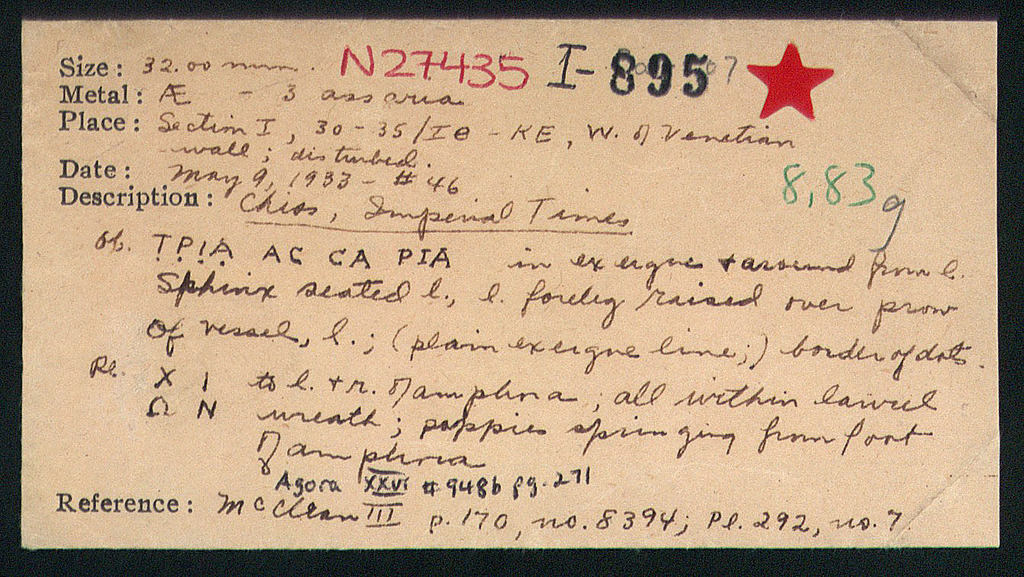 Size: 32.00 mm. N27435 I-895 7
Metal: Æ - 3 assaria
Place: Section I, 30-35/IΘ-KE, W. of Venetian
wall; disturbed.
Date: May 9, 1933 - #46
8,83g
Description: Chios, Imperial Times
Ob. ṬP̣ỊẠ AC CA PIA in exergue + around from l.
Sphinx seated l., l. foreleg raised over prow
of vessel, l.; (plain exergue line;) border of dots.
Re. X I to l. + r. of amphora; all within laurel
Ω N wreath; poppies springing from foot
of amphora
Agora XXVI #948b pg. 271
Reference: McClean III p. 170, no. 8394; Pl. 292, no. 7.